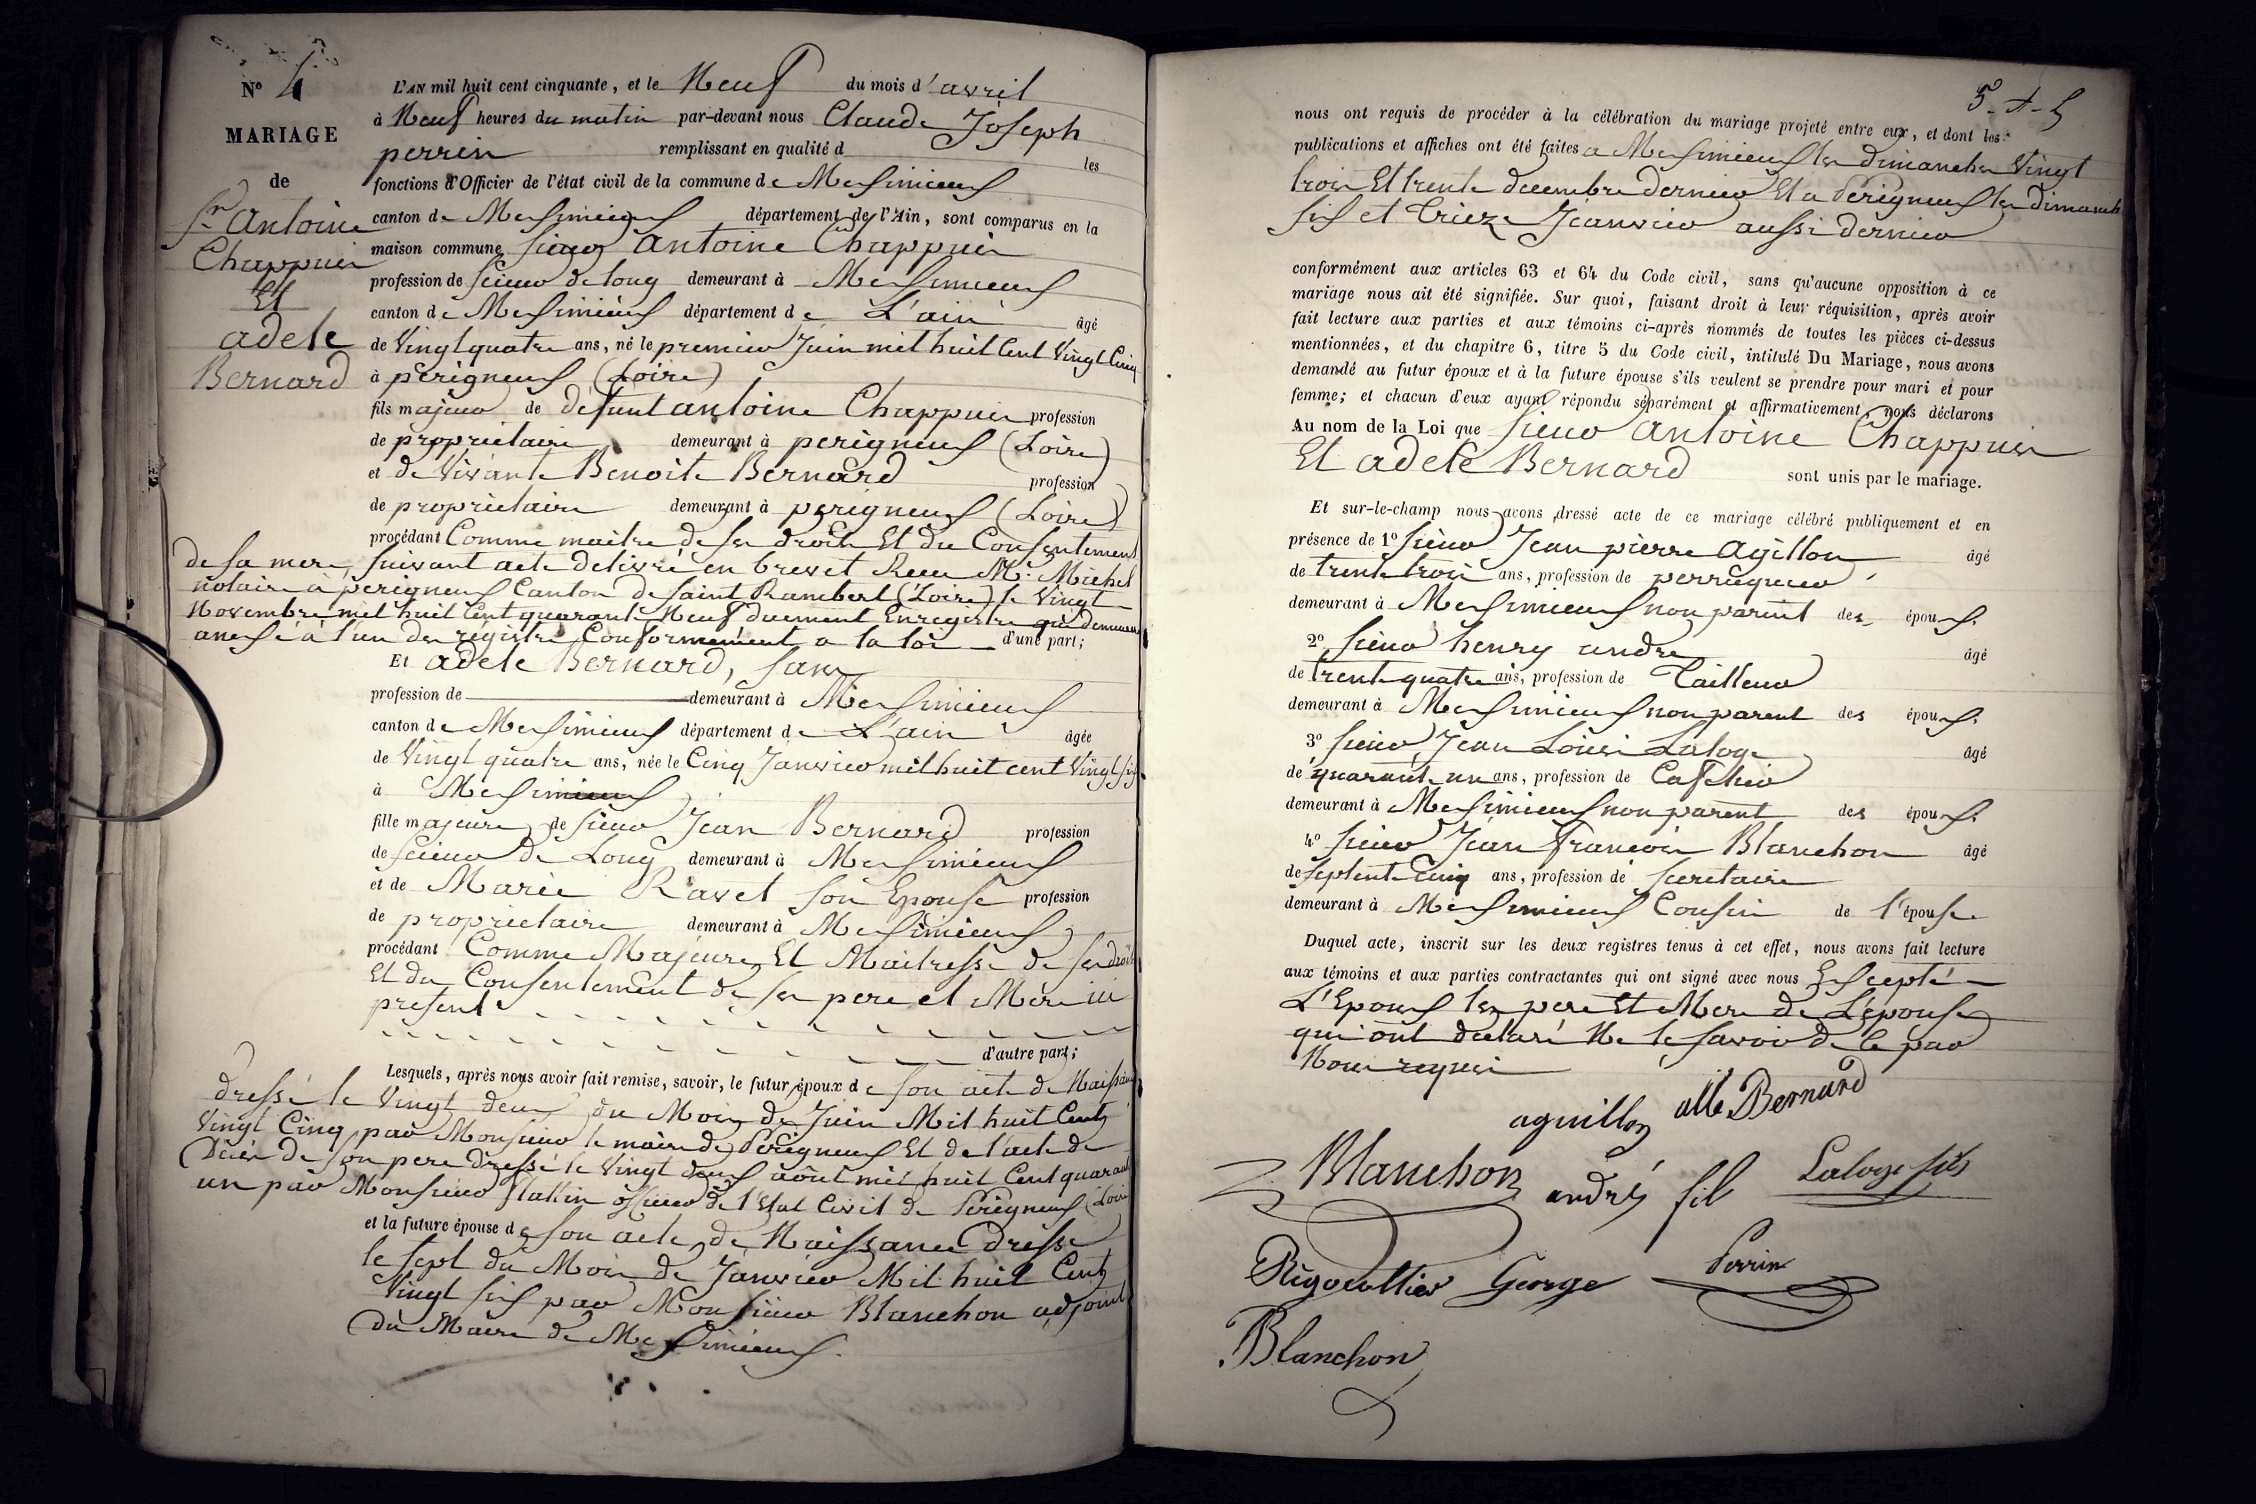 N° 4
MARIAGE
de
Sr Antoine
Chappuis
Et
adele
Bernard
L'AN mil huit cent cinquante, et le Neuf du mois d'avril
à Neuf heures du matin par-devant nous Claude Joseph
perrin remplissant en qualité d les
fonctions d'Officier de l'état civil de la commune de Messimieux
canton de Messimieux département de l'Ain, sont comparus en la
maison commune sieur Antoine Chappuis
profession de scieur de long demeurant à Messimieux
canton de Messimieux département de L'ain âgé
de Vingt quatre ans, né le premier Juin mil huit Cent Vingt Cinq
à perigneux (Loire)
fils majeur de défunt antoine Chappuis profession
de propriétaire demeurant à perigneux (Loire)
et de Vivante Benoite Bernard profession
de propriétaire demeurant à perigneux (Loire)
procédant Comme maitre de ses droits Et du Consentement
de sa mere, suivant acte delivré en brevet Recu Me. Michel
notaire à perigneux Canton de Saint Rambert (Loire) le Vingt
Novembre mil huit Cent quarante Neuf duement Enregistre qui demeure
anexé à l'un des registre Conformement a la loi d'une part;
Et adele Bernard, sans
profession de demeurant à Messimieux
canton de Messimieux département de L'ain âgée
de Vingt quatre ans, née le Cinq Janvier mil huit cent Vingt six
à Messimieux
fille majeure de sieur Jean Bernard profession
de scieur de Long demeurant à Messimieux
et de Marie Ravet son Epouse profession
de propriétaire demeurant à Messimieux
procédant Comme Majeure Et Maitresse de ses droits
Et du Consentement de ses pere et Mere ici
present
d'autre part;
Lesquels, après nous avoir fait remise, savoir, le futur époux de son acte de Naissance
dressé le Vingt deux du Mois de Juin Mil huit Cent
Vingt Cinq par Monsieur le maire de Perigneux Et de l'acte de
Décès de son pere dressé le Vingt deux août mil huit Cent quarante
un par Monsieur flattin officier de l'Etat Civil de Perigneux (Loire
et la future épouse de son acte de Naissance dressé
le sept du Mois de Janvier Mil huit Cent
Vingt six par Monsieur Blanchon adjoint
du Maire de Messimieux.
5-A-5
nous ont requis de procéder à la célébration du mariage projeté entre eux, et dont les
publications et affiches ont été faites a Messimieux les dimanches Vingt
trois Et trente decembre dernier Et a Perigneux les Dimanch
six et treize Janvier aussi dernier
conformément aux articles 63 et 64 du Code civil, sans qu'aucune opposition à ce
mariage nous ait été signifiée. Sur quoi, faisant droit à leur réquisition, après avoir
fait lecture aux parties et aux témoins ci-après nommés de toutes les pièces ci-dessus
mentionnées, et du chapitre 6, titre 5 du Code civil, intitulé Du Mariage, nous avons
demandé au futur époux et à la future épouse s'ils veulent se prendre pour mari et pour
femme; et chacun d'eux ayant répondu séparément et affirmativement, nous déclarons
Au nom de la Loi que sieur Antoine Chappuis
Et adele Bernard sont unis par le mariage.
Et sur-le-champ nous avons dressé acte de ce mariage célébré publiquement et en
présence de 1° sieur Jean pierre Agillon âgé
de trente trois ans, profession de perruquier
demeurant à Messimieux non parent des époux.
2° sieur henry andré âgé
de trente quatre ans, profession de Tailleur
demeurant à Messimieux non parent des époux.
3° sieur Jean Louis Laloge âgé
de quarante un ans, profession de Cafetier
demeurant à Messimieux non parent des époux.
4° sieur Jean francois Blanchon âgé
de septente Cinq ans, profession de secretaire
demeurant à Messimieux Cousin de l'épouse
Duquel acte, inscrit sur les deux registres tenus à cet effet, nous avons fait lecture
aux témoins et aux parties contractantes qui ont signé avec nous Excepté
L'Epoux les pere Et Mere de L'épouse
qui ont declaré Ne le savoir de ce par
Nous requis
aguillon alle Bernard
Blanchon andré fil Laloge fils
Rigoullier George Perrin
Blanchon